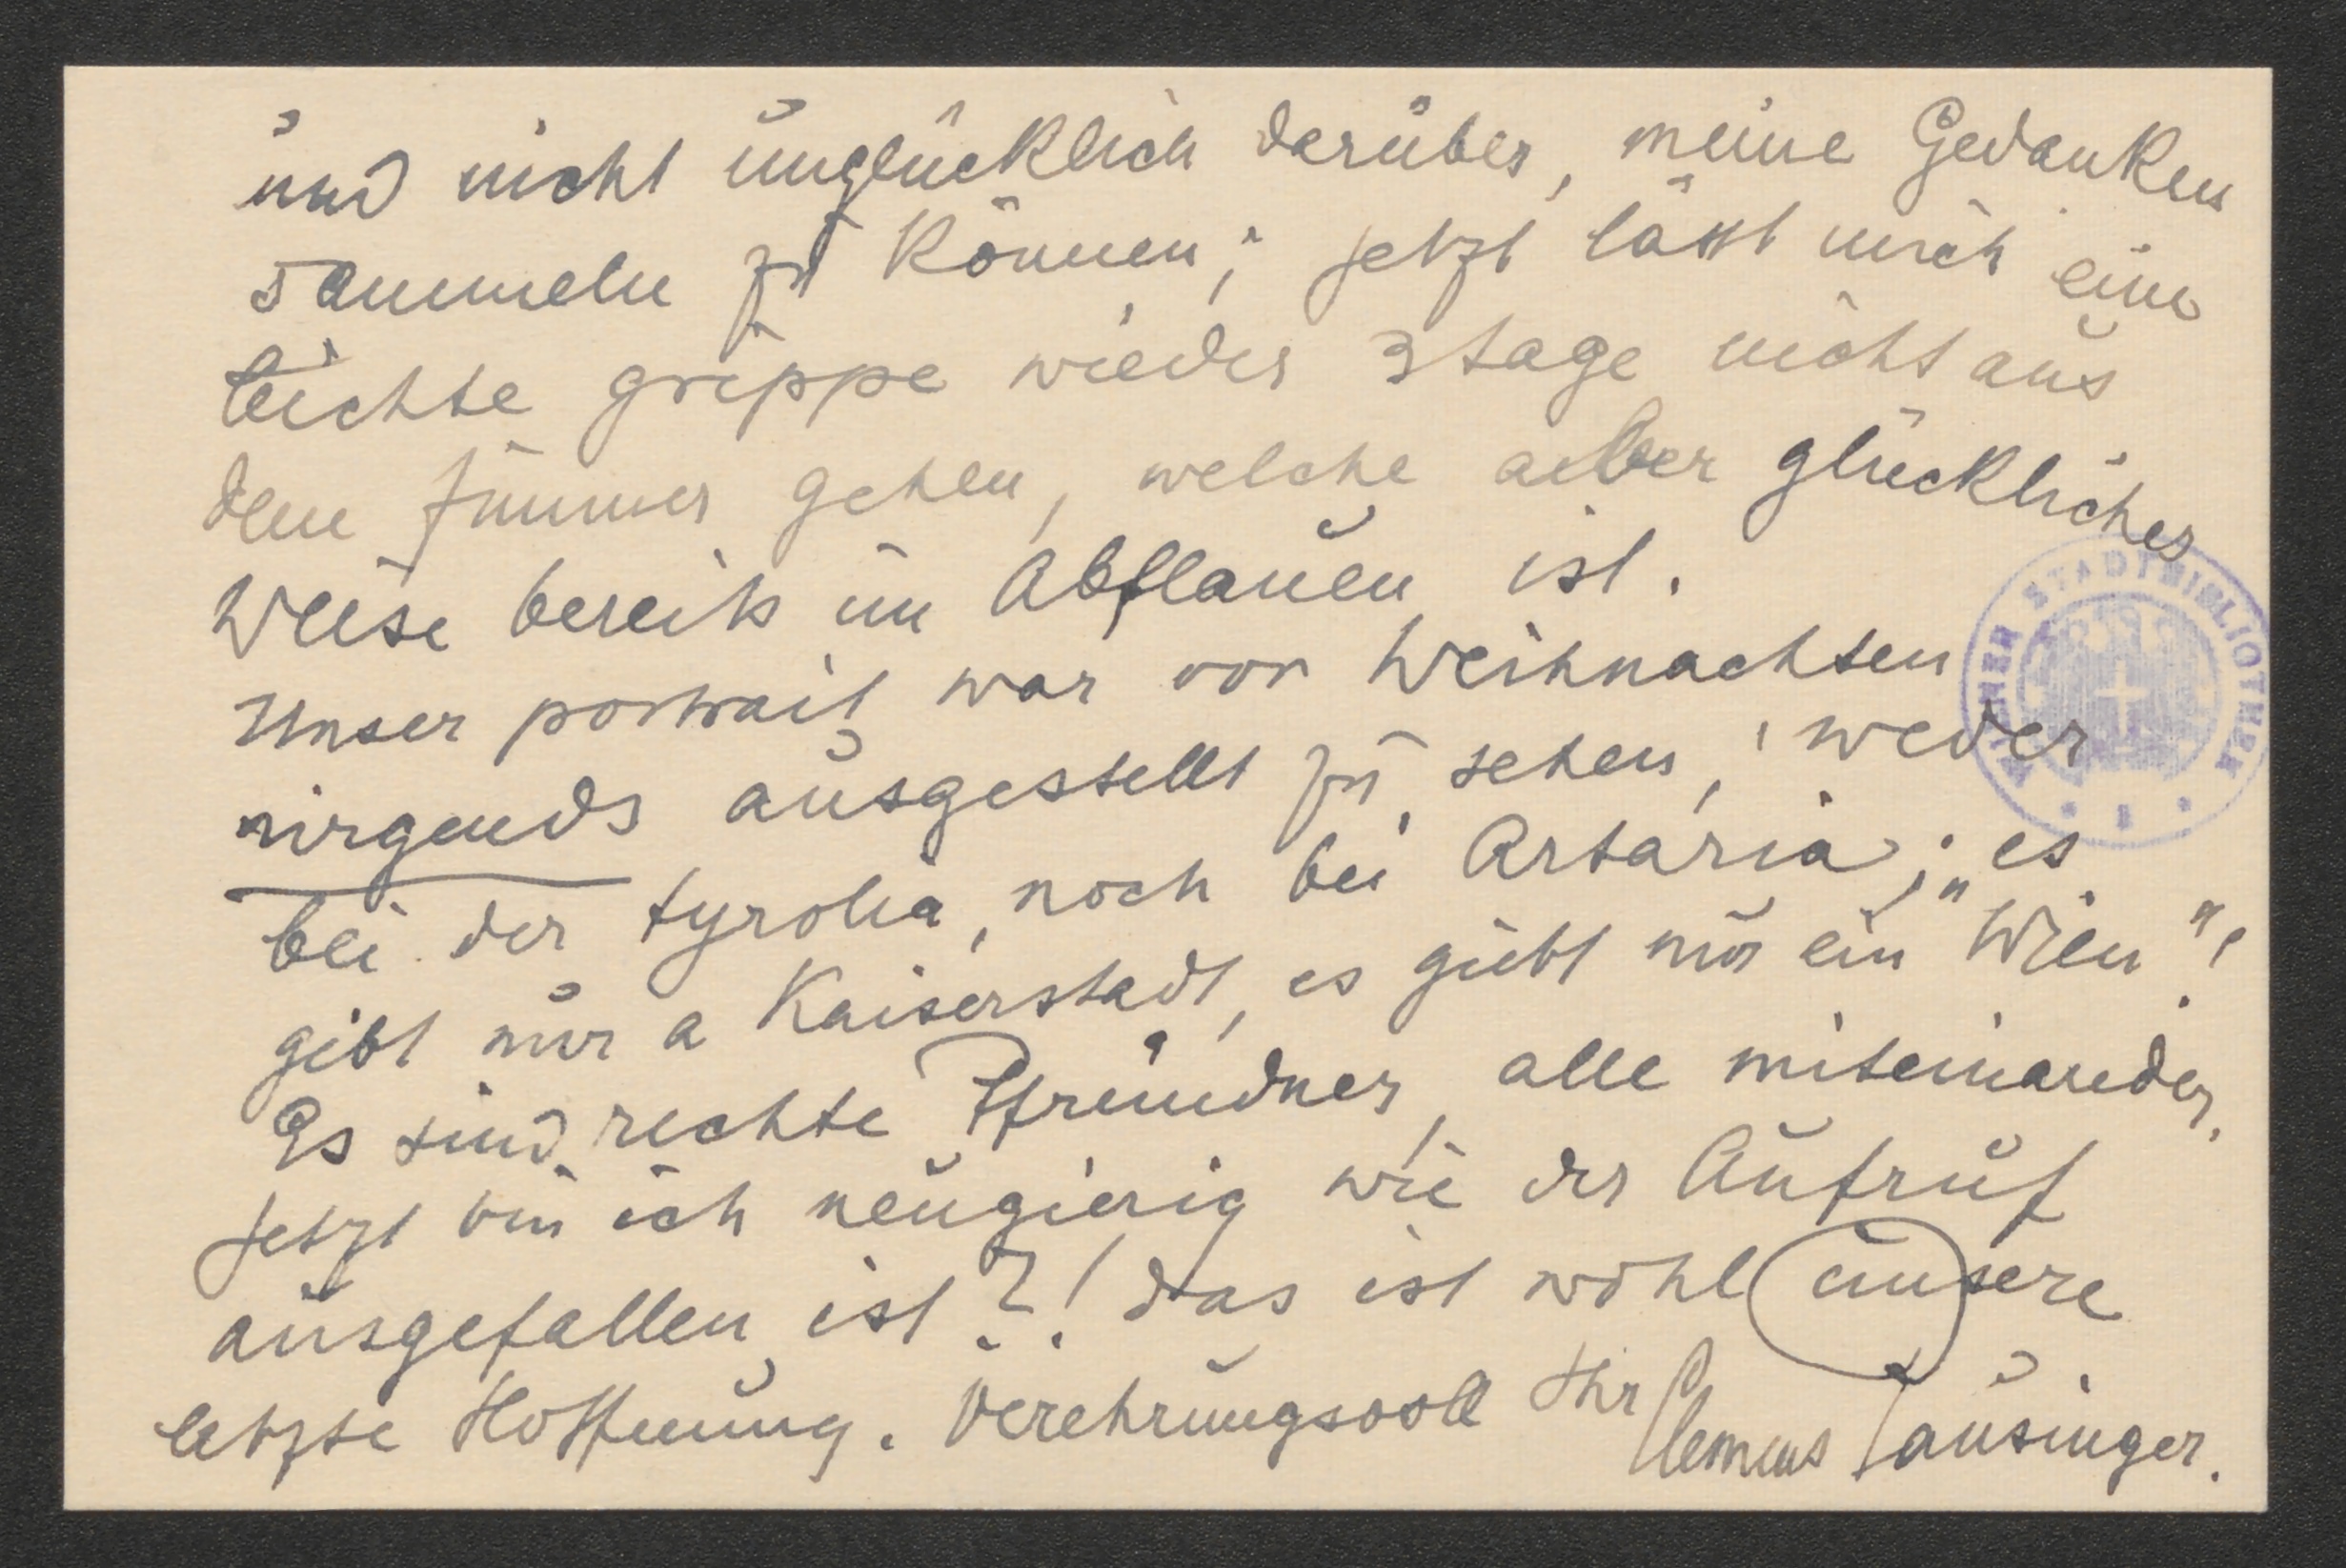 und nicht unglücklich darüber, meine Gedanken
sammeln zu können; jetzt lässt mich eine
leichte grippe wieder 3 tage nicht aus
dem Zimmer gehen, welche aber glücklicher
Weise bereits im Abflauen ist.
Unser portrait war vor Weihnachten
nirgends ausgestellt zu sehen, weder
bei der tyrolia, noch bei Artaria; „es
gibt nur a Kaiserstadt, es giebt nur ein Wien"!
Es sind rechte Pfründner, alle miteinander.
Jetzt bin ich neugierig wie der Aufruf
ausgefallen ist?! das ist wohl unsere
letzte Hoffnung. Verehrungsvoll Ihr Clemens Lausinger.
WIENER STADTBIBLIOTHEK